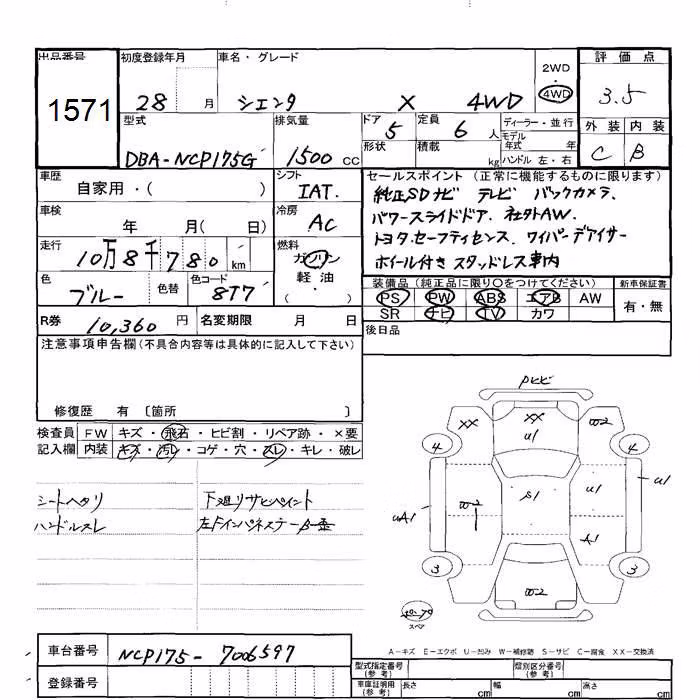 出品番号 初度登録年月 車名・グレード 2WD・4WD 評価点
1571 28 月 シエンタ X 4WD 3.5
型式 排気量 ドア 5 定員 6 人 ディーラー・並行 外装 内装
DBA-NCP175G 1500 CC 形状 積載 kg モデル年式 年 ハンドル 左・右 C B
車歴 自家用・( ) シフト IAT. セールスポイント (正常に機能するものに限ります)
純正SDナビ テレビ バックカメラ.
車検 年 月( 日) 冷房 AC パワースライドドア. 社外AW.
走行 10万8千780 km 燃料 ガソリン・軽油・ トヨタセーフティセンス. ワイパーデアイサー
ホイル付きスタッドレス車内
色 ブルー 色替 色コード 8T7 装備品 (純正品に限り〇をつけてください) 新車保証書
PS PW ABS エアB AW 有・無
R券 10,360 円 名変期限 月 日 SR ナビ TV カワ
注意事項申告欄(不具合内容等は具体的に記入して下さい) 後日品
修復歴 有 〔箇所 〕
検査員 FW キズ・飛石・ヒビ割・リペア跡・×要
記入欄 内装 キズ・汚レ・コゲ・穴・スレ・キレ・破レ
シートヘタリ 下廻リサビペイント
ハンドルスレ
XX XX W2
U1
4 4
W2 S1 U1 U1
UA1
A1
3 3
W2
スペア
A-キズ E-エクボ U-凹み W-補修跡 S-サビ C-腐食 XX-交換済
車台番号 NCP175-7006597
登録番号
型式指定番号(参考) 類別区分番号(参考)
車庫証明用(参考) 長さ cm 幅 cm 高さ cm